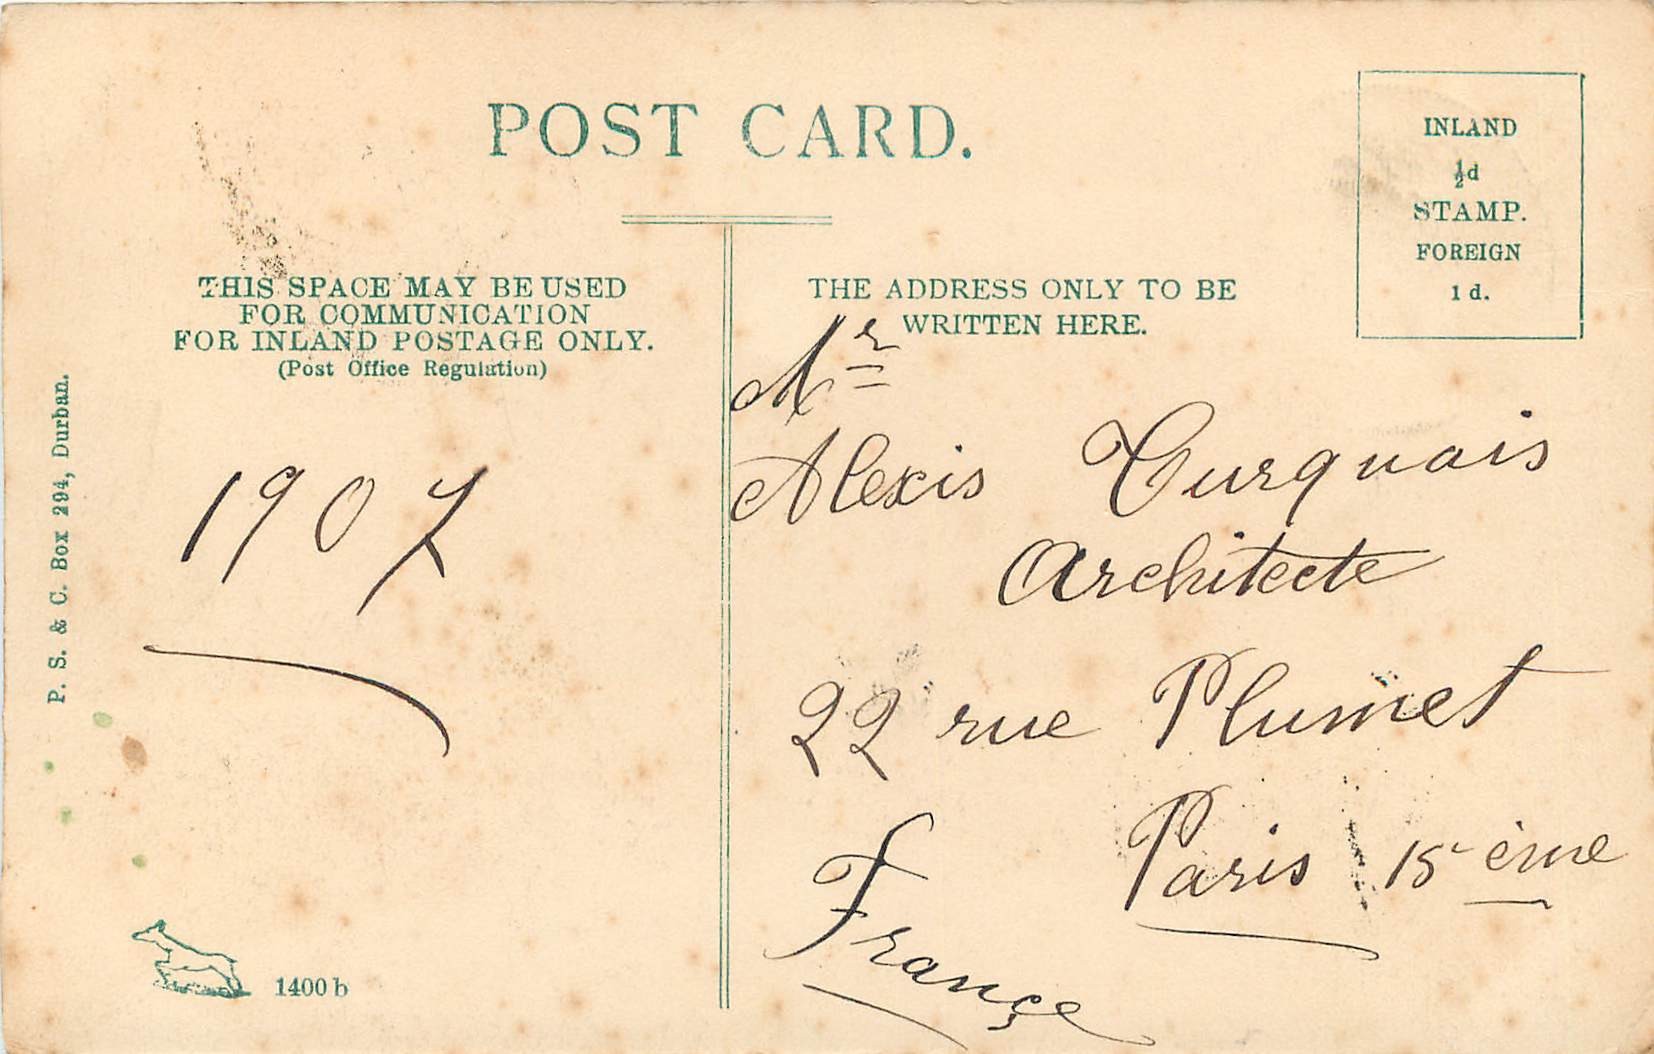 POST CARD.
INLAND
½d
STAMP.
FOREIGN
1d.
THIS SPACE MAY BE USED
FOR COMMUNICATION
FOR INLAND POSTAGE ONLY.
(Post Office Regulation)
THE ADDRESS ONLY TO BE
WRITTEN HERE.
P. S. & C. Box 294, Durban.
1907
Mr
Alexis Turquais
Architecte
22 rue Plumet
Paris 15 ème
Françe
1400 b